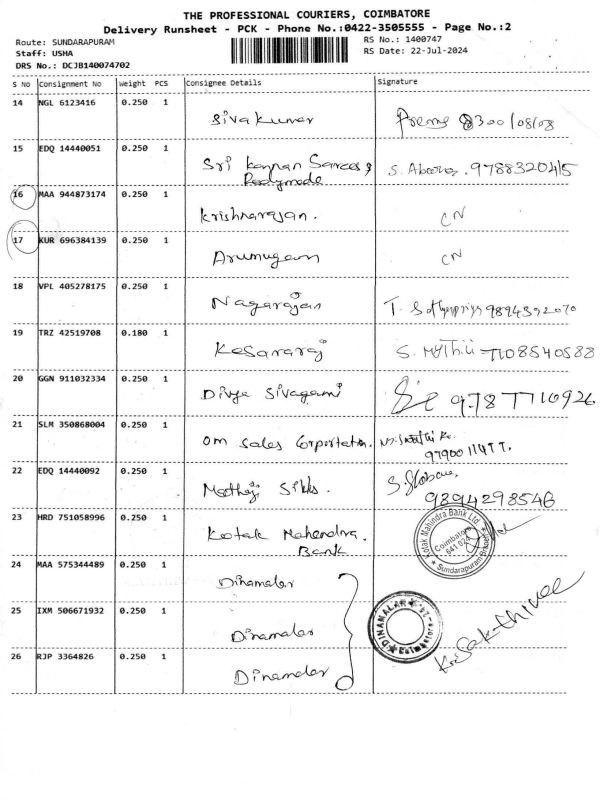 THE PROFESSIONAL COURIERS, COIMBATORE
Delivery Runsheet - PCK - Phone No.:0422-3505555 - Page No.:2
Route: SUNDARAPURAM
RS No.: 1400747
Staff: USHA
RS Date: 22-Jul-2024
DRS No.: DCJB140074702
S No Consignment No Weight PCS Consignee Details Signature
14 NGL 6123416 0.250 1
Sivakumar
15 EDQ 14440051 0.250 1
Sri Kannan Sarees &
Readymade
S. 9788320415
16 MAA 944873174 0.250 1
Krishnarajan. CN
17 KUR 696384139 0.250 1
Arumugam CN
18 VPL 405278175 0.250 1
Nagarajan T. 9894392070
19 TRZ 42519708 0.180 1
Kesavaraj S. 7108540588
20 GGN 911032334 0.250 1
Divya Sivagami 9787710926
21 SLM 350868004 0.250 1
Om Sales Corportation.
22 EDQ 14440092 0.250 1
Silks.
9894298546
23 HRD 751058996 0.250 1
Kotak Mahendra
Bank
Kotak Mahindra Bank Ltd.
Coimbatore
641 024
Sundarapuram Branch
24 MAA 575344489 0.250 1
Dinamalar
25 IXM 506671932 0.250 1
Dinamalar
DINAMALAR
Coimbatore
26 RJP 3364826 0.250 1
Dinamalar